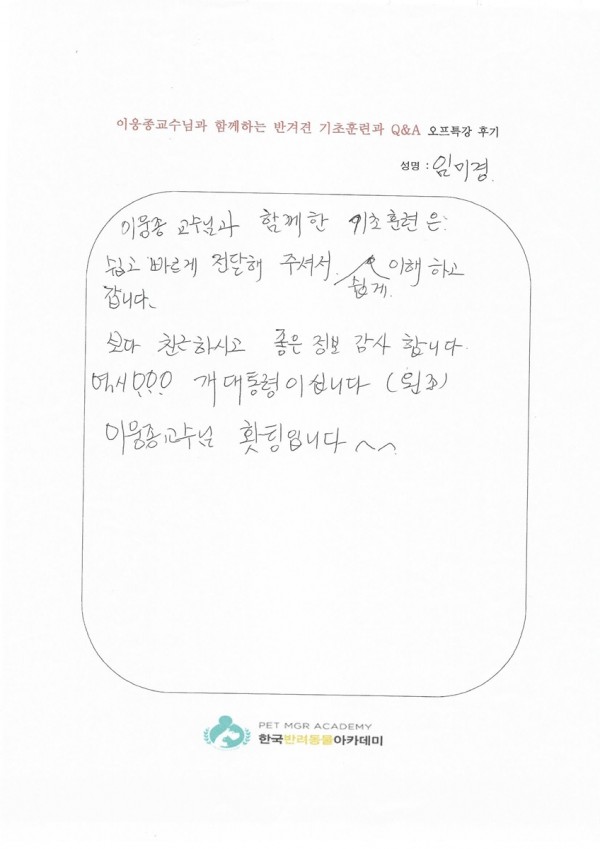 이웅종교수님과 함께하는 반겨견 기초훈련과 Q&A 오프특강 후기
성명 : 임미경.
이웅종 교수님과 함께한 기초훈련은.
쉽고 빠르게 전달해 주셔서 쉽게 이해하고
갑니다.
보다 친근하시고 좋은 정보 감사 합니다.
역시!!! 개대통령이십니다 (원조)
이웅종교수님 홧팅입니다 ^^
PET MGR ACADEMY
한국반려동물아카데미